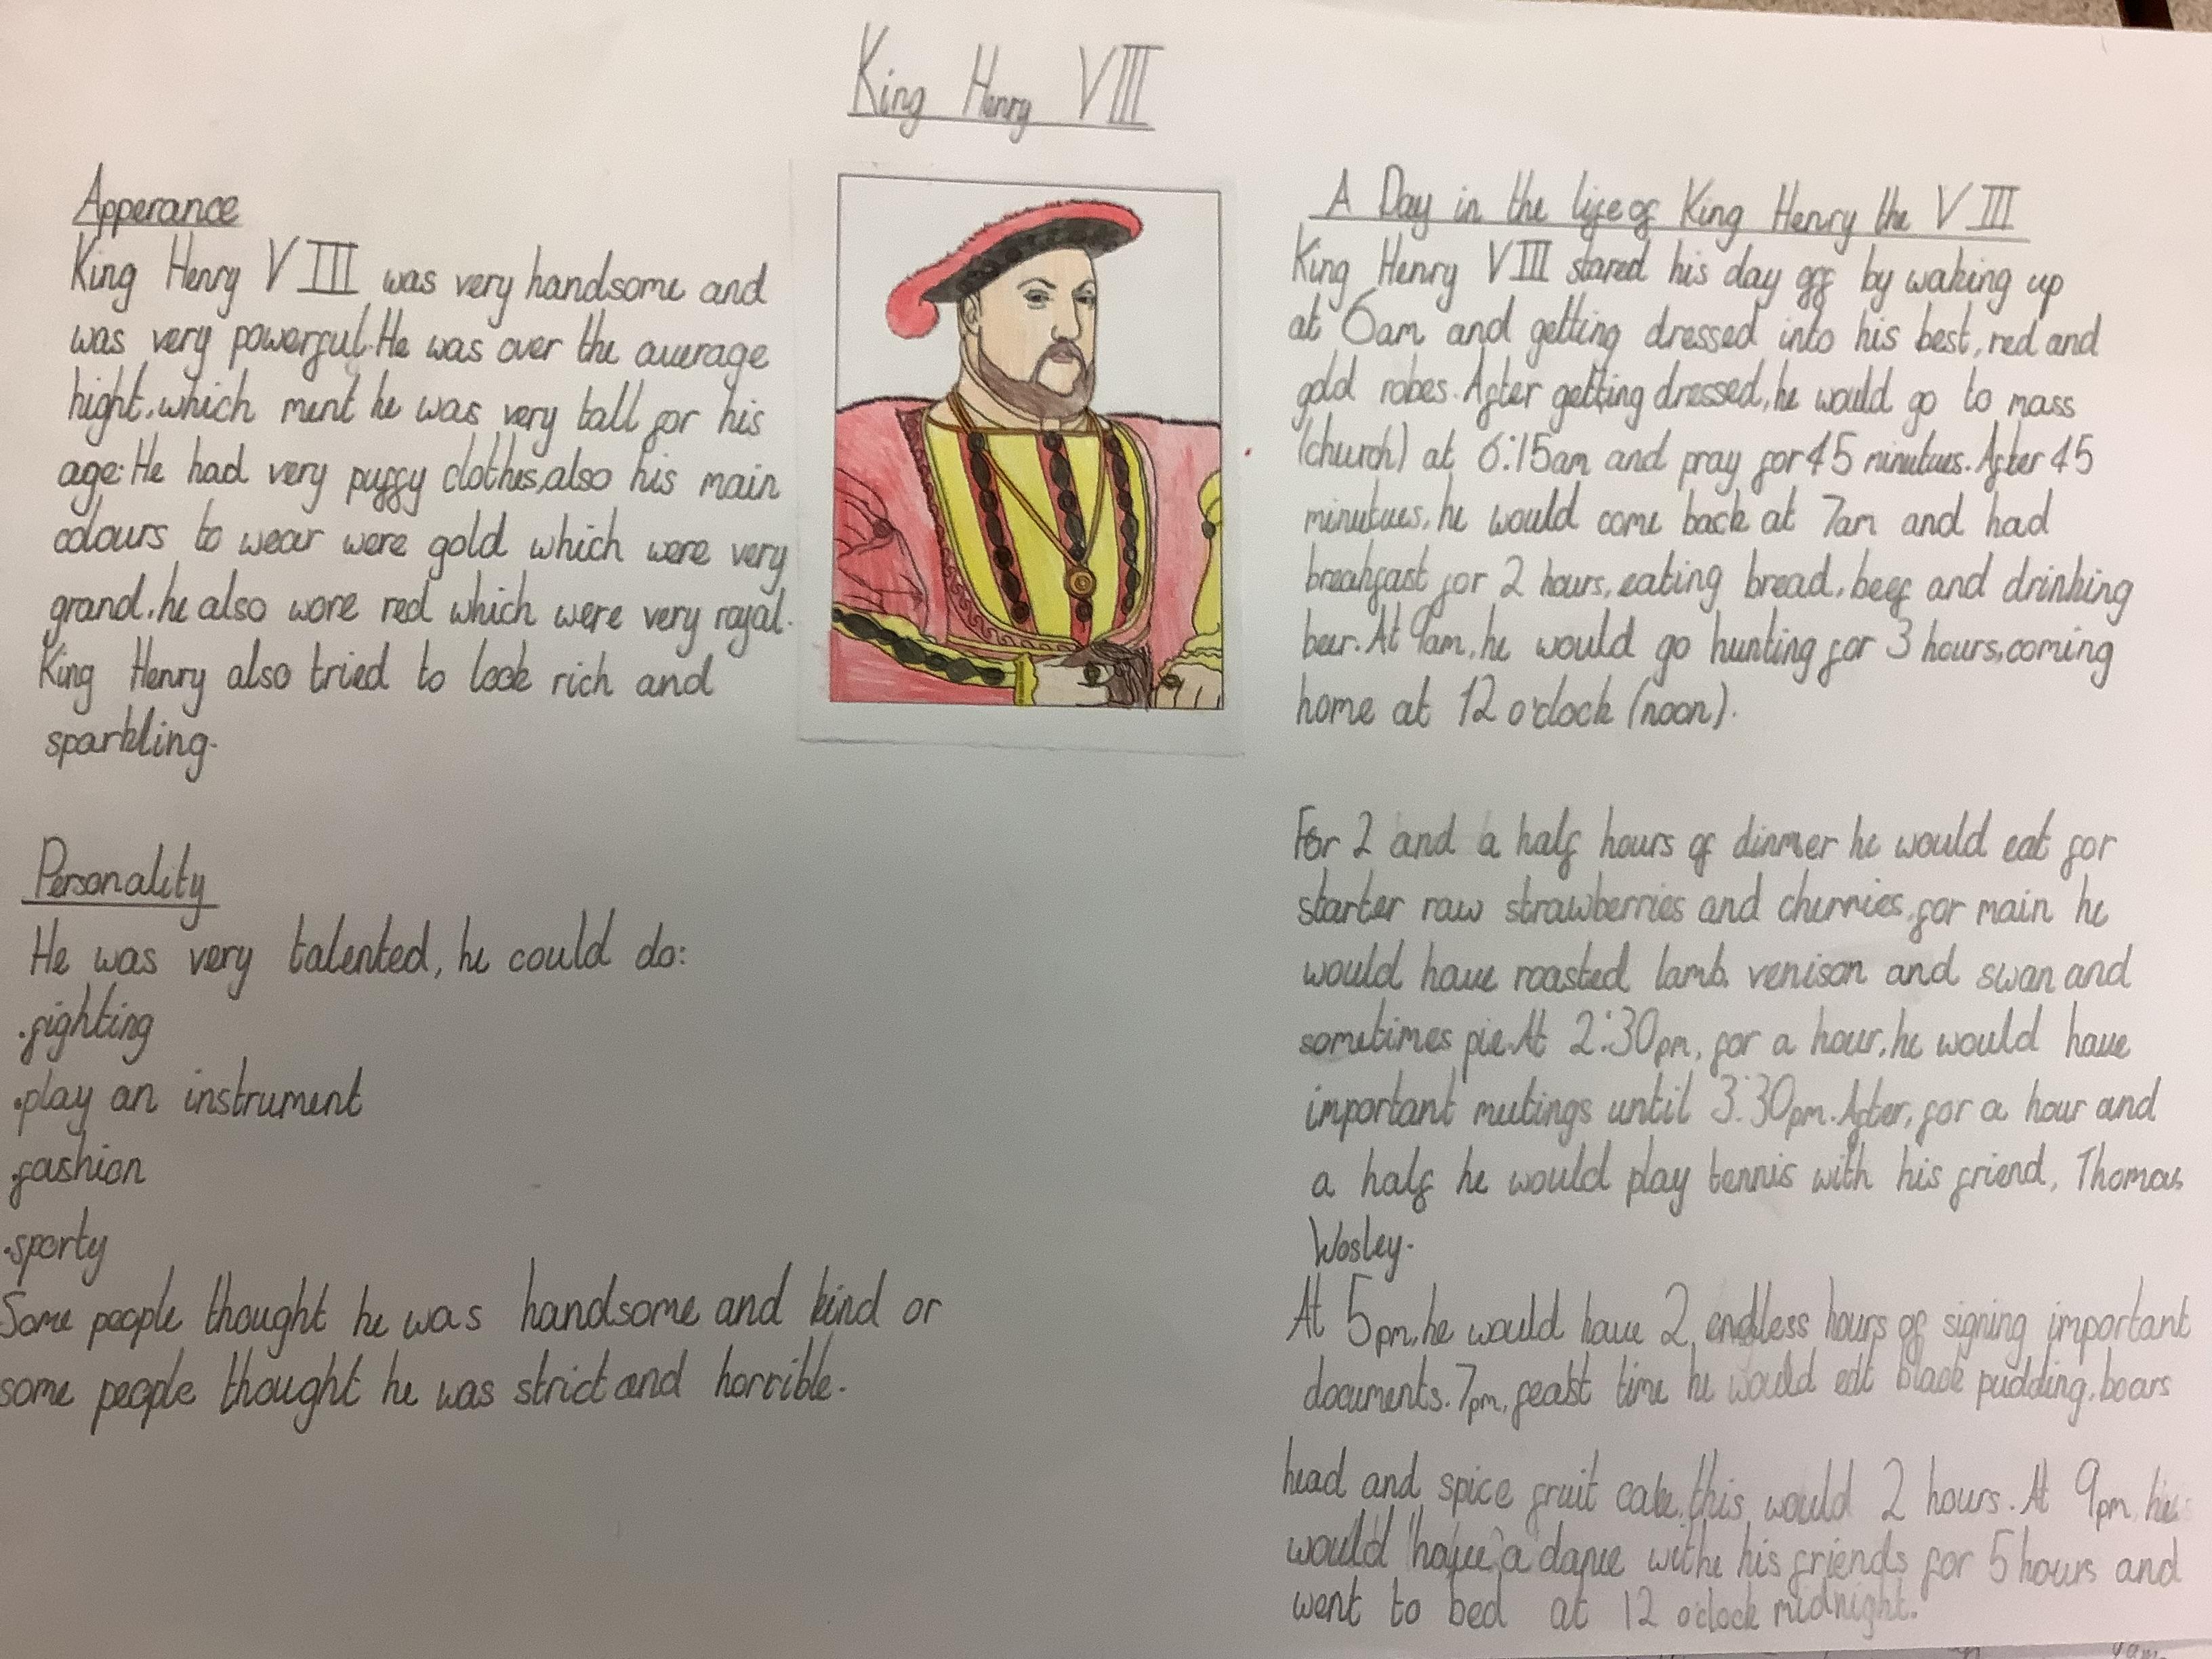 King Henry VIII
Apperance
King Henry VIII was very handsome and
was very powerful. He was over the average
hight, which ment he was very tall for his
age. He had very puffy clothes, also his main
colours to wear were gold which were very
grand, he also wore red which were very royal.
King Henry also tried to look rich and
sparkling.
Personality
He was very talented, he could do:
.fighting
.play an instrument
.fashion
.sporty
Some people thought he was handsome and kind or
some people thought he was strict and horrible.
A Day in the life of King Henry the VIII
King Henry VIII stared his day off by waking up
at 6am and getting dressed into his best, red and
gold robes. After getting dressed, he would go to mass
(church) at 6:15am and pray for 45 minutues. After 45
minutues, he would come back at 7am and had
breakfast for 2 hours, eating bread, beef and drinking
beer. At 9am, he would go hunting for 3 hours, coming
home at 12 o'clock (noon).
For 2 and a half hours of dinner he would eat for
starter raw strawberries and cherries, for main he
would have roasted lamb, venison and swan and
sometimes pie. At 2:30pm, for a hour, he would have
important meetings until 3:30pm. After, for a hour and
a half he would play tennis with his friend, Thomas
Wosley.
At 5pm, he would have 2 endless hours of signing important
documents. 7pm, feast time he would eat black pudding, boars
head and spice fruit cake, this would 2 hours. At 9pm, he
would have a dance withe his friends for 5 hours and
went to bed at 12 o'clock midnight.